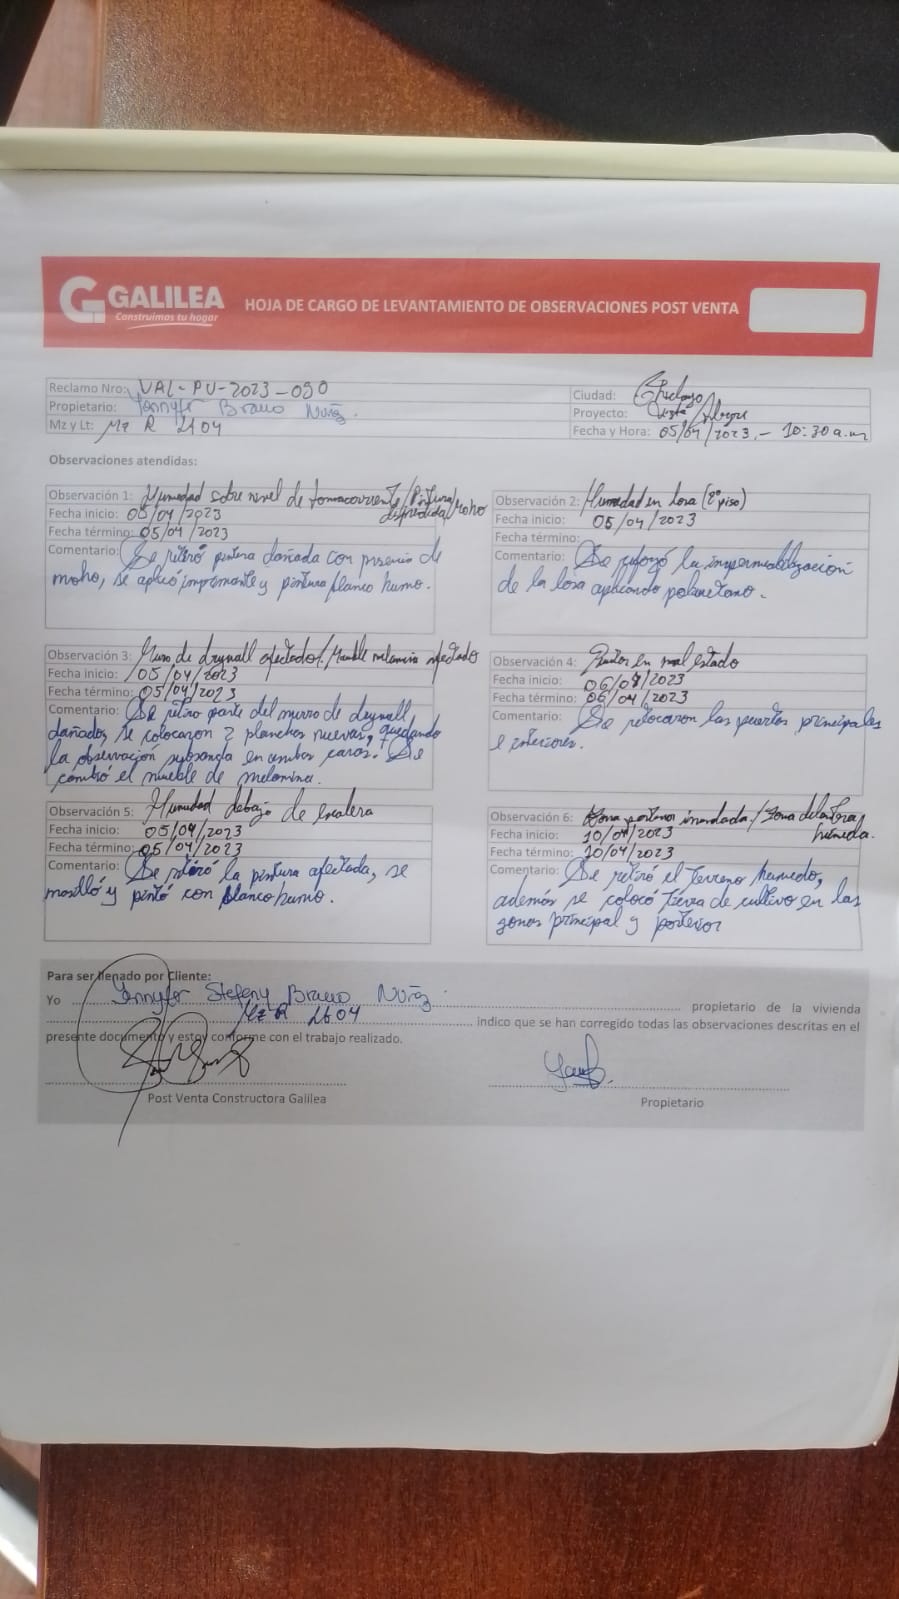 GALILEA
Construimos tu hogar
HOJA DE CARGO DE LEVANTAMIENTO DE OBSERVACIONES POST VENTA
Reclamo Nro: VAL-PV-2023-090
Propietario: Yennyfer Bravo Nuñez
Mz y Lt: Mz R Lt 04
Ciudad: Chiclayo
Proyecto: Vista Alegre
Fecha y Hora: 05/04/2023.- 10:30 a.m
Observaciones atendidas:
Observación 1: Humedad sobre nivel de tomacorriente/Pintura
desprendida/Moho
Fecha inicio: 05/04/2023
Fecha término: 05/04/2023
Comentario: Se retiró pintura dañada con presencia de
moho, se aplicó imprimante y pintura blanco humo.
Observación 2: Humedad en losa (2° piso)
Fecha inicio: 05/04/2023
Fecha término:
Comentario: Se reforzó la impermeabilización
de la losa aplicando poliuretano.
Observación 3: Muro de drywall afectado/Mueble melamina afectado
Fecha inicio: 05/04/2023
Fecha término: 05/04/2023
Comentario: Se retiro parte del muro de drywall
dañado, se colocaron 2 planchas nuevas, quedando
la observación subsanda en ambas caras. Se
cambió el mueble de melamina.
Observación 4: en mal estado
Fecha inicio: 06/04/2023
Fecha término: 06/04/2023
Comentario: Se retocaron las puertas principales
e interiores.
Observación 5: Humedad debajo de escalera
Fecha inicio: 05/04/2023
Fecha término: 05/04/2023
Comentario: Se retiró la pintura afectada, se
masilló y pintó con blanco humo.
Observación 6: Zona inundada/Zona delantera
húmeda.
Fecha inicio: 10/04/2023
Fecha término: 10/04/2023
Comentario: Se retiró el terreno húmedo,
además se colocó tierra de cultivo en las
zonas principal y posterior
Para ser llenado por Cliente:
Yo Yennyfer Stefeny Bravo Nuñez propietario de la vivienda
Mz R Lt 04 indico que se han corregido todas las observaciones descritas en el
presente documento y estoy conforme con el trabajo realizado.
Post Venta Constructora Galilea
Propietario